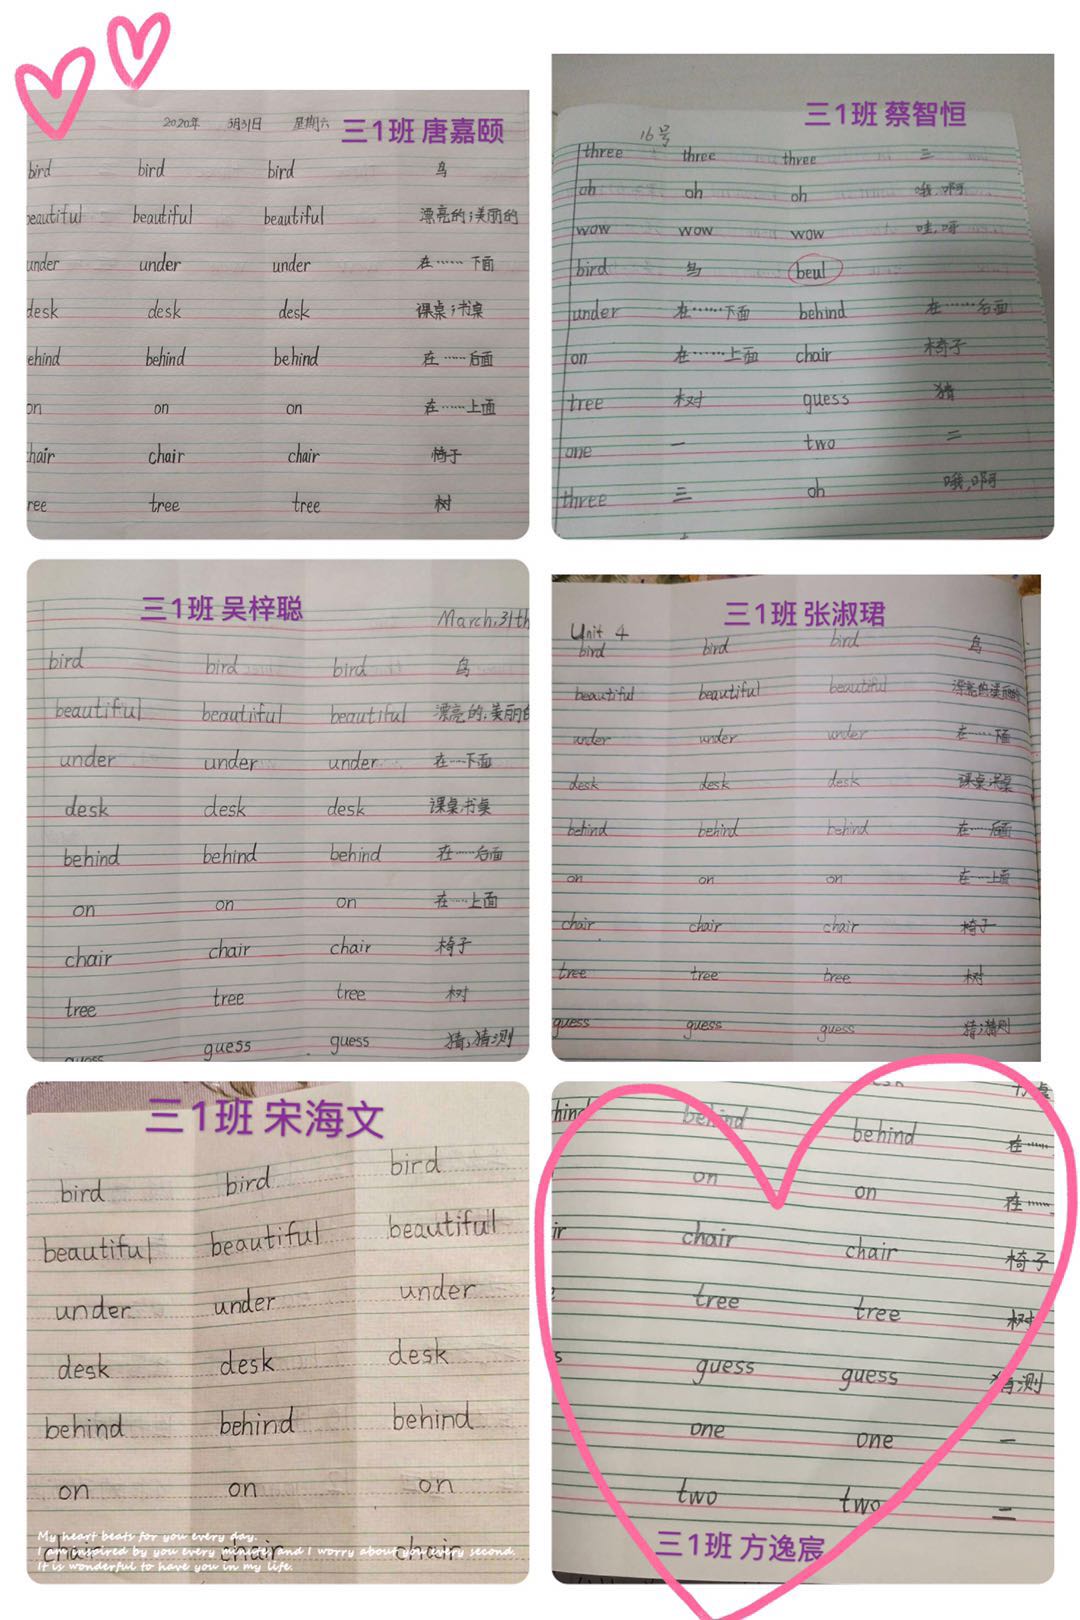 2020年 3月31日 星期六 三1班 唐嘉颐
bird bird bird 鸟
eautiful beautiful beautiful 漂亮的;美丽的
under under under 在……下面
desk desk desk 课桌;书桌
ehind behind behind 在……后面
on on on 在……上面
hair chair chair 椅子
ree tree tree 树
三1班 蔡智恒
16号
three three three 三
oh oh oh 哦,啊
wow wow wow 哇,呀
bird 鸟 beul
under 在……下面 behind 在……后面
on 在……上面 chair 椅子
tree 树 guess 猜
one 一 two 二
three 三 oh 哦,啊
三1班 吴梓聪
March,31th
bird bird bird 鸟
beautiful beautiful beautiful 漂亮的;美丽的
under under under 在……下面
desk desk desk 课桌;书桌
behind behind behind 在……后面
on on on 在……上面
chair chair chair 椅子
tree tree tree 树
guess guess guess 猜;猜测
三1班 张淑珺
Unit 4
bird bird bird 鸟
beautiful beautiful beautiful 漂亮的;美丽的
under under under 在……下面
desk desk desk 课桌;书桌
behind behind behind 在……后面
on on on 在……上面
chair chair chair 椅子
tree tree tree 树
guess guess guess 猜;猜测
三1班 宋海文
bird bird bird
beautiful beautiful beautiful
under under under
desk desk desk
behind behind behind
on on on
chair chair chair
My heart beats for you every day.
I am inspired by you every minute, and I worry about you every second.
It is wonderful to have you in my life.
hind behind behind 在……
on on 在……
ir chair chair 椅子
tree tree 树
guess guess 猜测
one one 一
two two 二
三1班 方逸宸